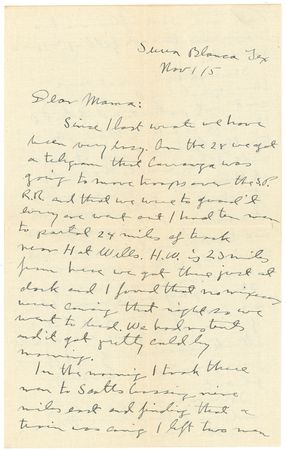 Sierra Blanca Tex
Nov 1/15
Dear Mama:
Since I last wrote we have
been very busy. On the 28 we got
a telegram that Carranza was
going to move troops over the S.P.
R.R and that we were to guard it
away we went and I had ten men
to patrol 24 miles of track
near Hot Wells. H.W. is 23 miles
from here we got there just at
dark and I found that no mexicans
were coming that night so we
went to bed. We had no tents
and it got pretty cold by
morning.
In the morning I took three
men to Scotts Crossing nine
miles east and finding that a
train was coming I left two men